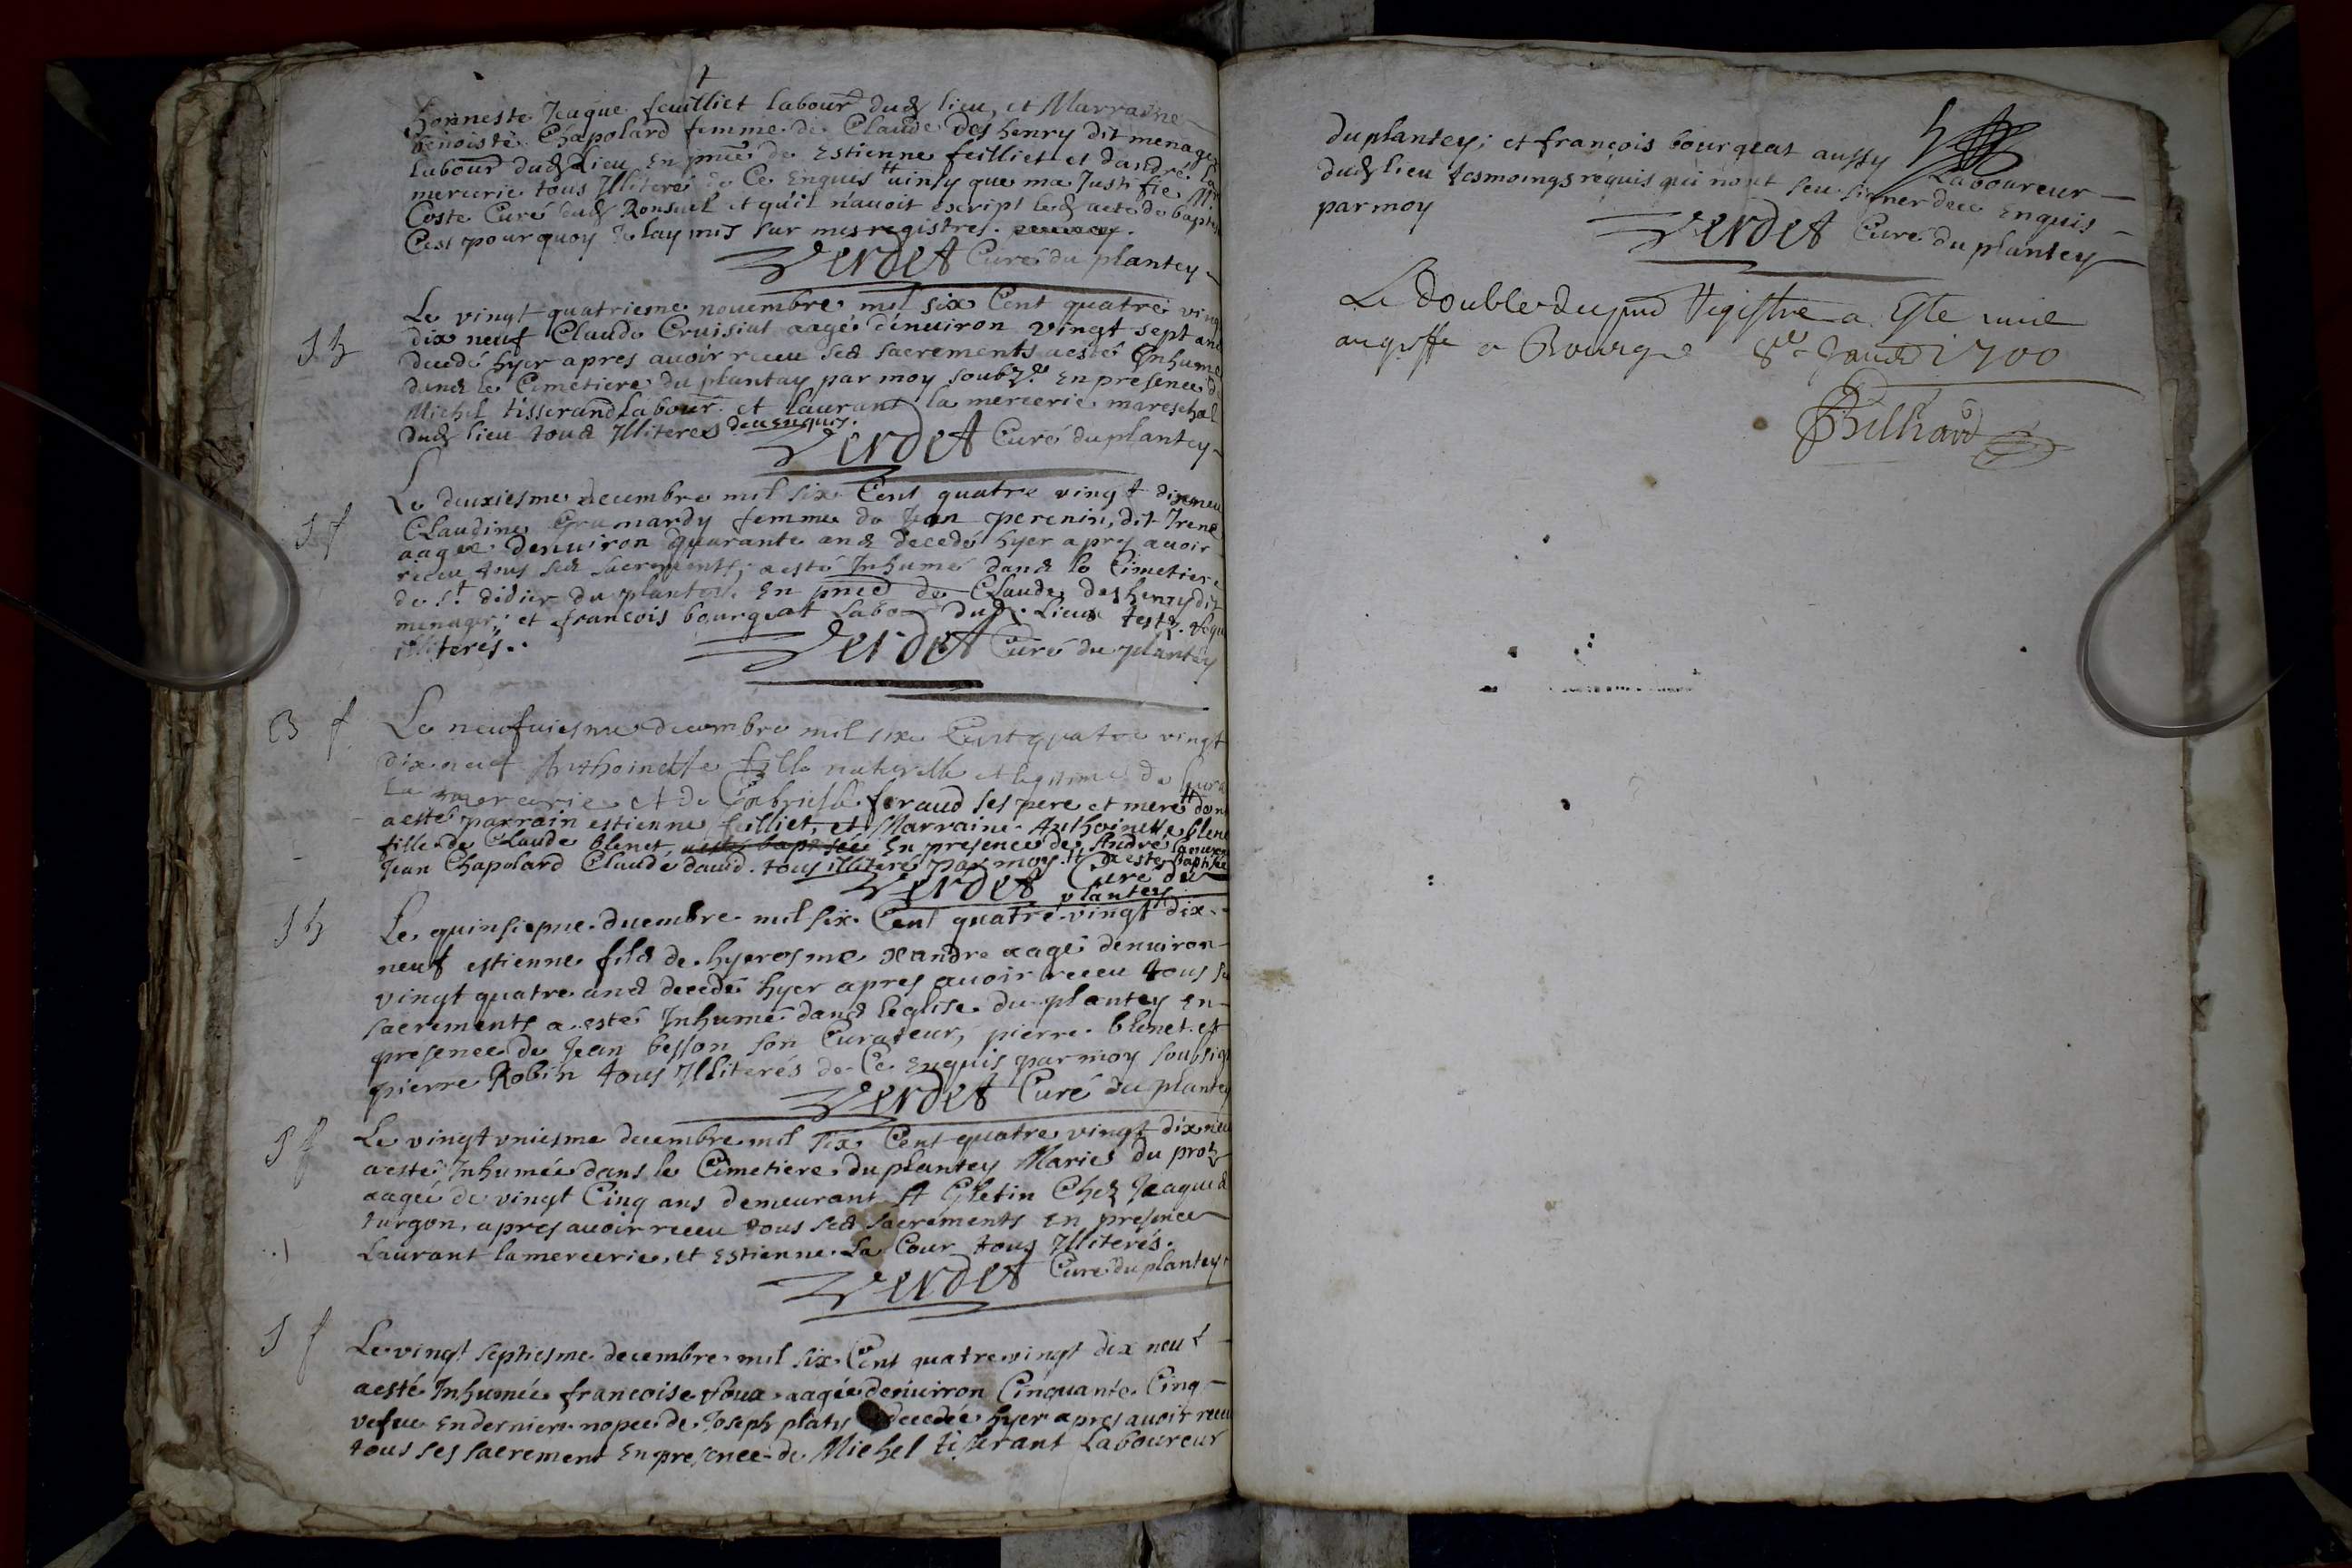 honneste Jaque feuilliet labour dud lieu, et Marraine
benoiste Chapolard femme de Claude des henry dit menager
labour dud Lieu En pnce de Estienne feilliet et dandré la
mercerie tous Illiterés de Ce Enquis ainsy que ma Justifie Mr
Coste Curé dud Ronsuel et quil nauoit escript led acte de bapte
Cest pourquoy Je lay mis sur mes registres.
Verdet Curé du plantey
Le vingt quatrieme nouembre mil six Cent quatre ving
S h dix neuf Claude Cruisiat aagé denuiron vingt sept ans
decedé hyer apres auoir receu ses sacrements a esté Inhumé
dans le Cimetiere du plantay par moy soubz.né En presence de
Michel tisserand labour. et laurant la mercerie mareschal
dud lieu tous Illiteres de ce enquis.
Verdet Curé du plantey
Le deuxiesme decembre mil six Cent quatre vingt dixneu
S f Claudine Grumardy femme de Jean perenin, dit Irene
aagee denuiron quarante ans decedé hyer apres auoir
receu tous ses sacrements, a esté Inhumé dans le Cimetiere
de st didier du plantey. En pnce de Claude des henry dit
menager; et francois bourgeat Labo dud. Lieux testz. requ
illiterés.
Verdet Curé du plantey
B f Le neufuiesme decembre mil six Cent quatre vingt
dix neuf Anthoinette fille naturelle et legitime de Laura
La mercerie et de Gabrielle feraud ses pere et mere dont
a esté parrain estienne feilliet, et Marraine Anthoinette blene
fille de Claude blenet, a esté baptisée En presence de André Lamerce
Jean Chapolard Claude dauid. tous illiteré par moy. a este baptisée
Verdet Curé du
plantey
S h Le quinsiepme. decembre mil six. Cent quatre-vingt dix-
neuf estienne fils de hyerosme xandre aagé denuiron
vingt quatre ans decedé hyer apres auoir receu tous se
sacrements a esté Inhumé dans leglise du plantey en
presence de Jean besson son Curateur, pierre blenet et
pierre Robin tous Illiterés de Ce Enquis par moy soubsig
Verdet Curé du plantey
S f Le vingt vniesme decembre mil six Cent quatre vingt dix neu
a esté Inhumée dans le Cimetiere du plantey Marie du proz
aagée de vingt Cinq ans demeurant A Gletin Chez Jaques
turgon, apres auoir receu tous ses sacrements en presence
Laurant lamercerie, et Estienne La Cour tous Illiterés.
Verdet Curé du plantey
S f Le vingt septiesme decembre mil six Cent quatre vingt dix neuf
a esté Inhumée francoise roux aagée denuirron Cinquante Cinq
vefue en dernier nopce de Joseph platy decedée hyer apres auoir receu
tous ses sacrement En presence de Michel tiserant Laboureur
du plantey; et françois bourgeat aussy Laboureur
dud lieu tesmoings requis qui nont seu signer de ce Enquis
par moy
Verdet Curé du plantey
Le double du pnt Registre a Esté mis
au greffe a Bourg le 8e Januier 1700
Bilhard